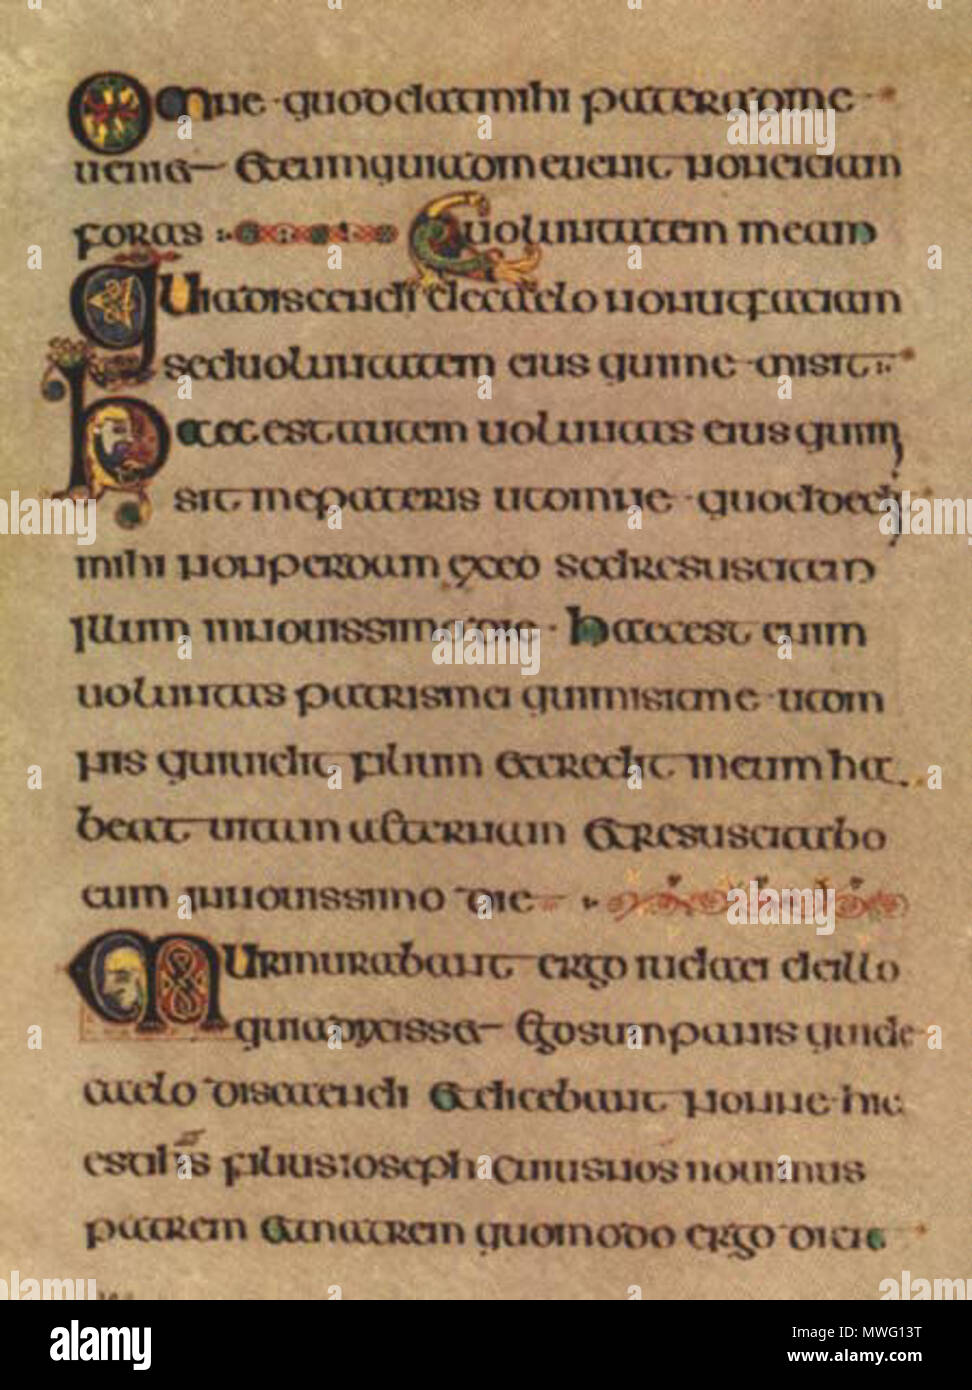 Omne quod dat mihi pater ad me
veniet et eum qui ad me venit non eiciam
foras Et voluntatem meam
Quia discendi de caelo non ut faciam
sed voluntatem eius qui me misit
Haec est autem voluntas eius qui mi
sit me pateris ut omne quod dedi
mihi non perdam ex eo sed resuscitem
illum in novissimo die Haec est enim
voluntas patris mei qui misit me ut om
nis qui vidit filium et credit in eum ha
beat vitam aeternam et resuscitabo
eum in novissimo die
Murmurabant ergo iudaei de illo
quia dixisset Ego sum panis qui de
caelo discendi et dicebant nonne hic
est ilis filius ioseph cuius nos novimus
patrem et matrem quomodo ergo dicit
alamy
Image ID: MWG13T
www.alamy.com